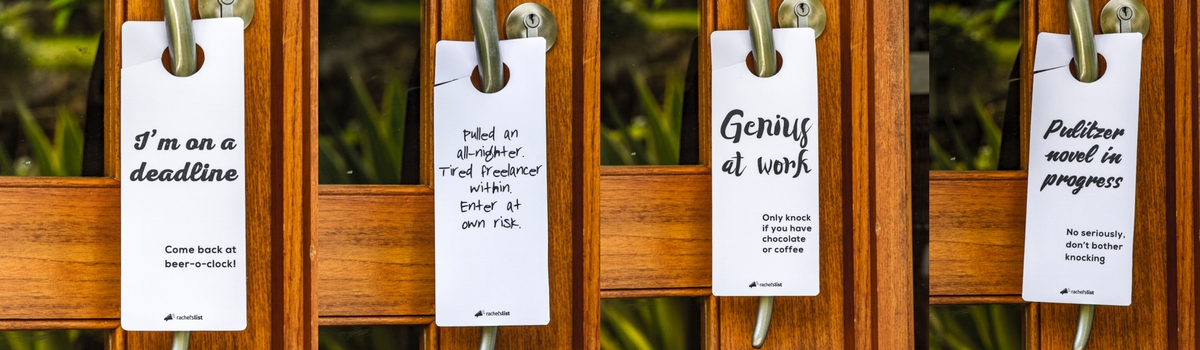 I'm on a
deadline
Come back at
beer-o-clock!
rachel'slist
Pulled an
all-nighter.
Tired freelancer
within.
Enter at
own risk.
rachel'slist
Genius
at work
Only knock
if you have
chocolate
or coffee
rachel'slist
Pulitzer
novel in
progress
No seriously,
don't bother
knocking
rachel'slist